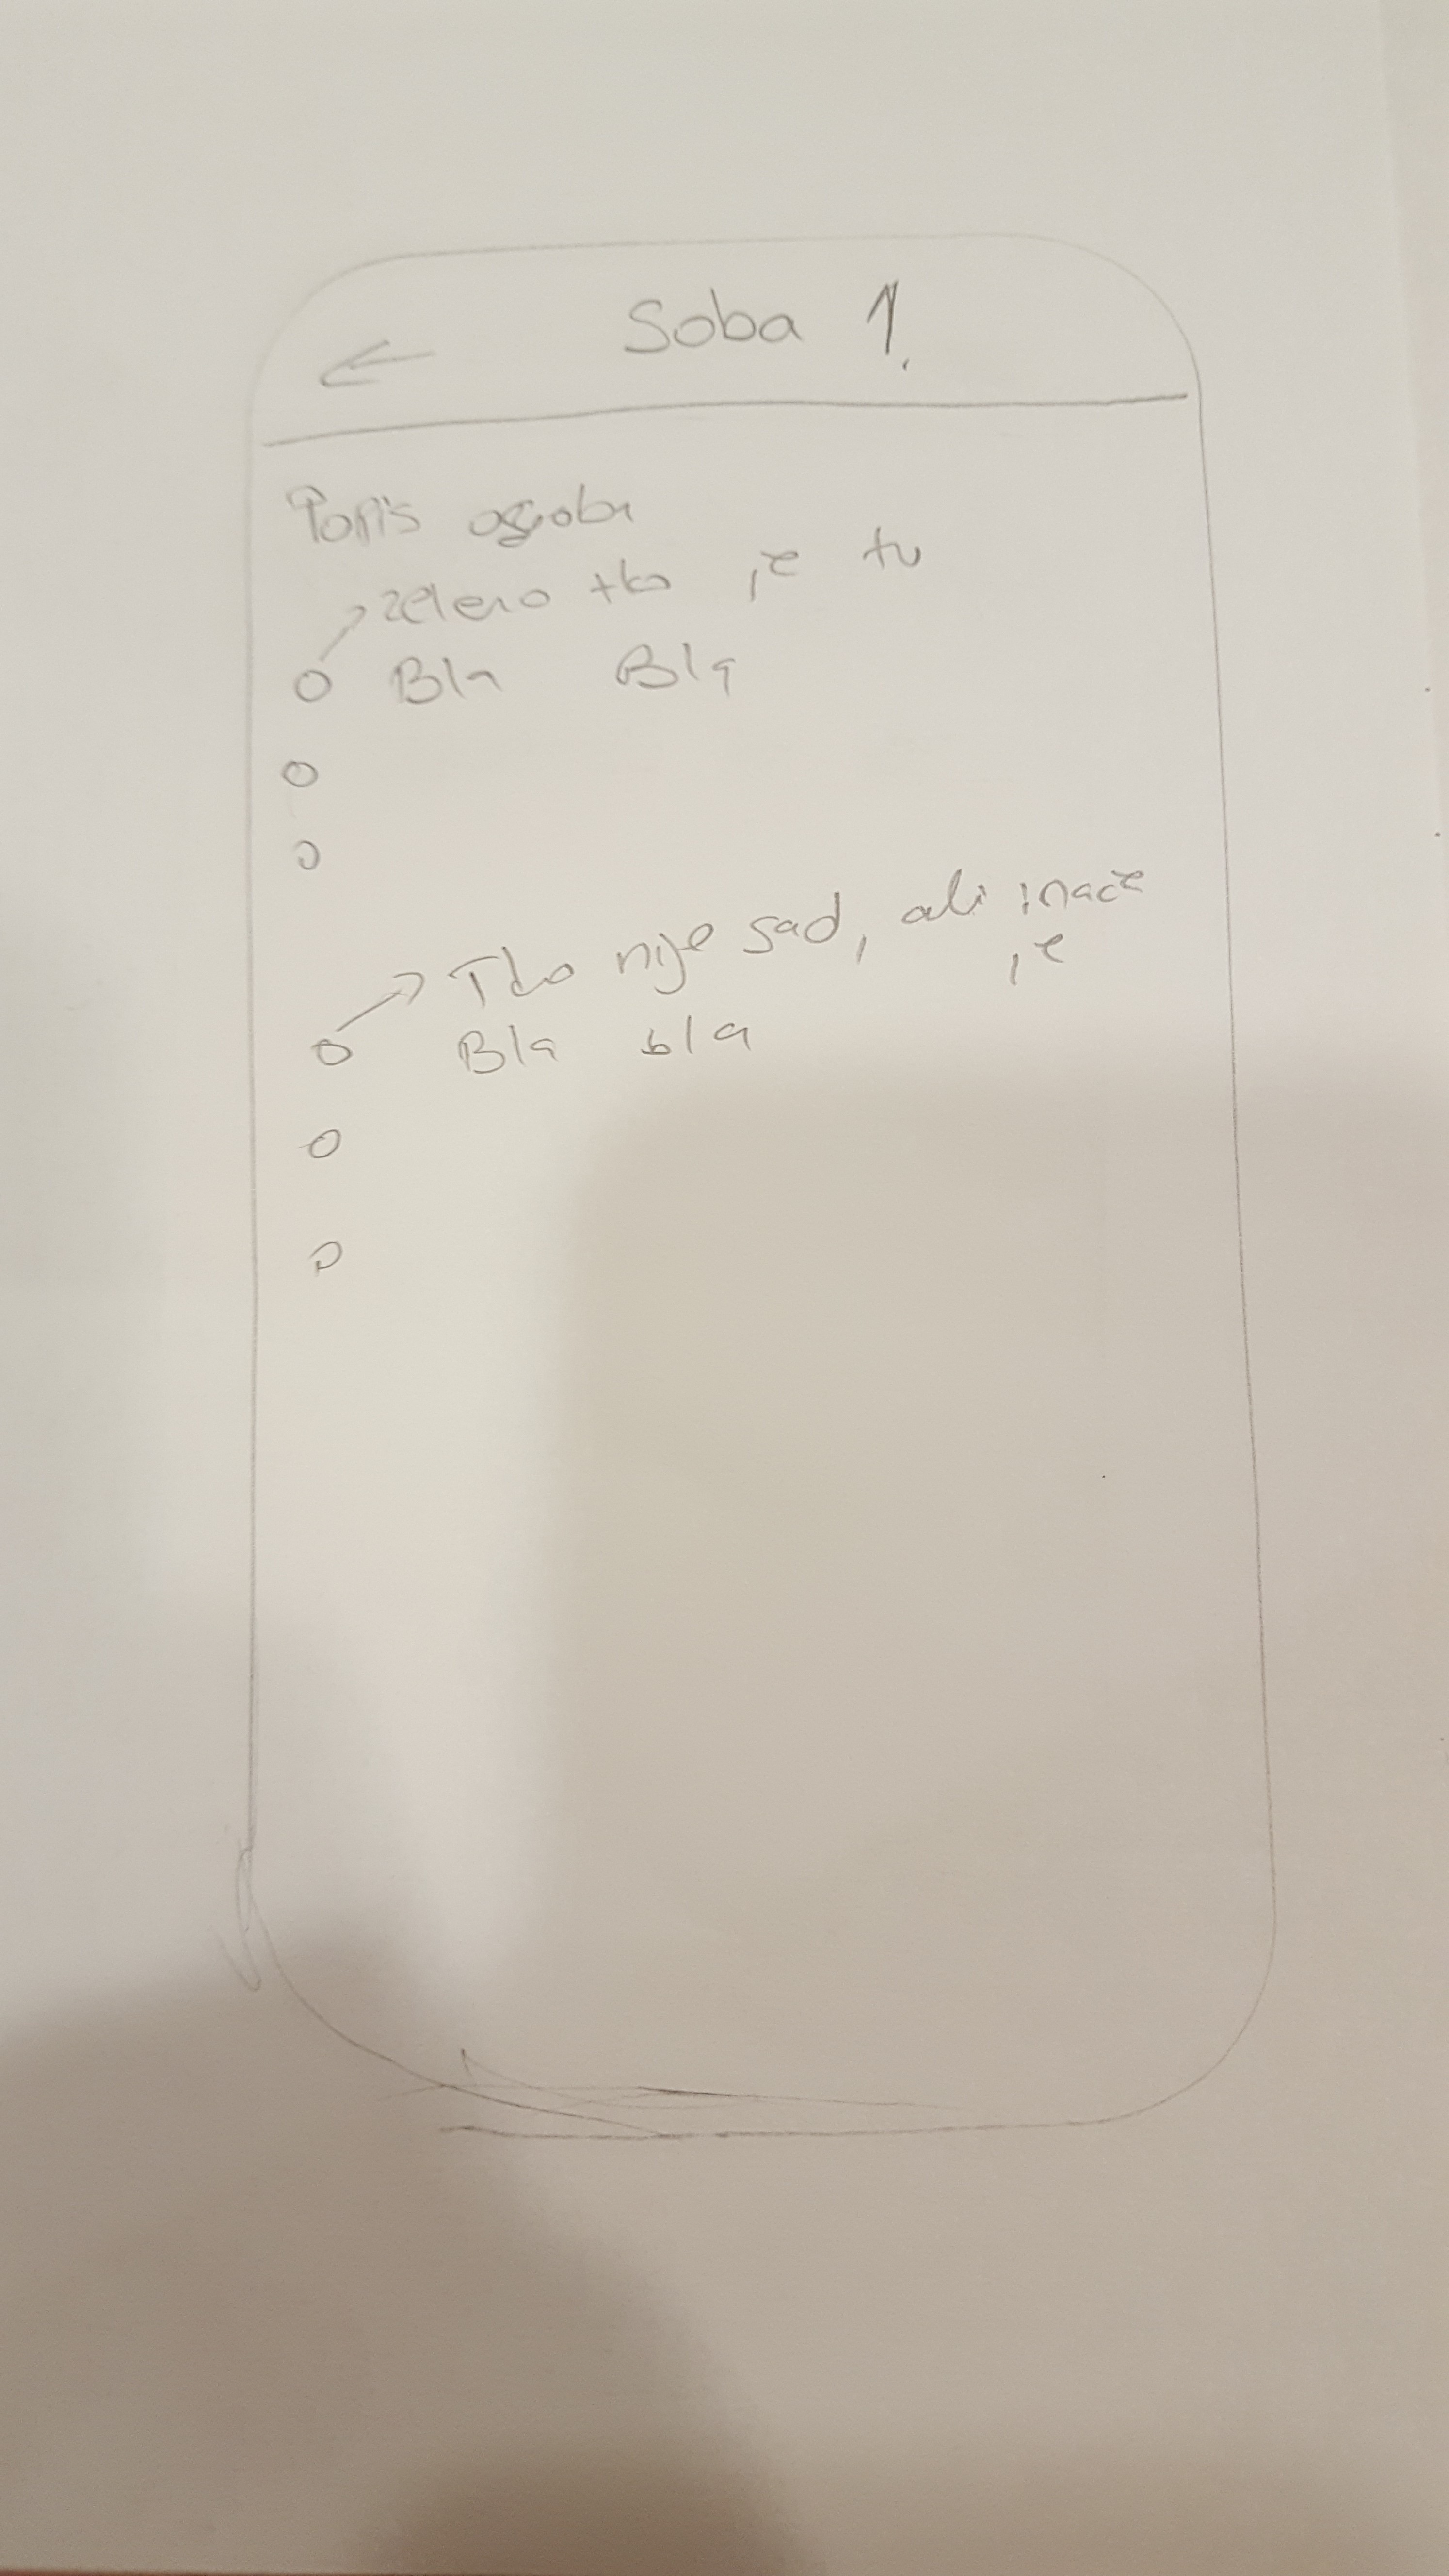 Soba 1.
Popis osoba
zeleno tko je tu
Bla Bla
Tko nije sad, ali inače
je
Bla bla